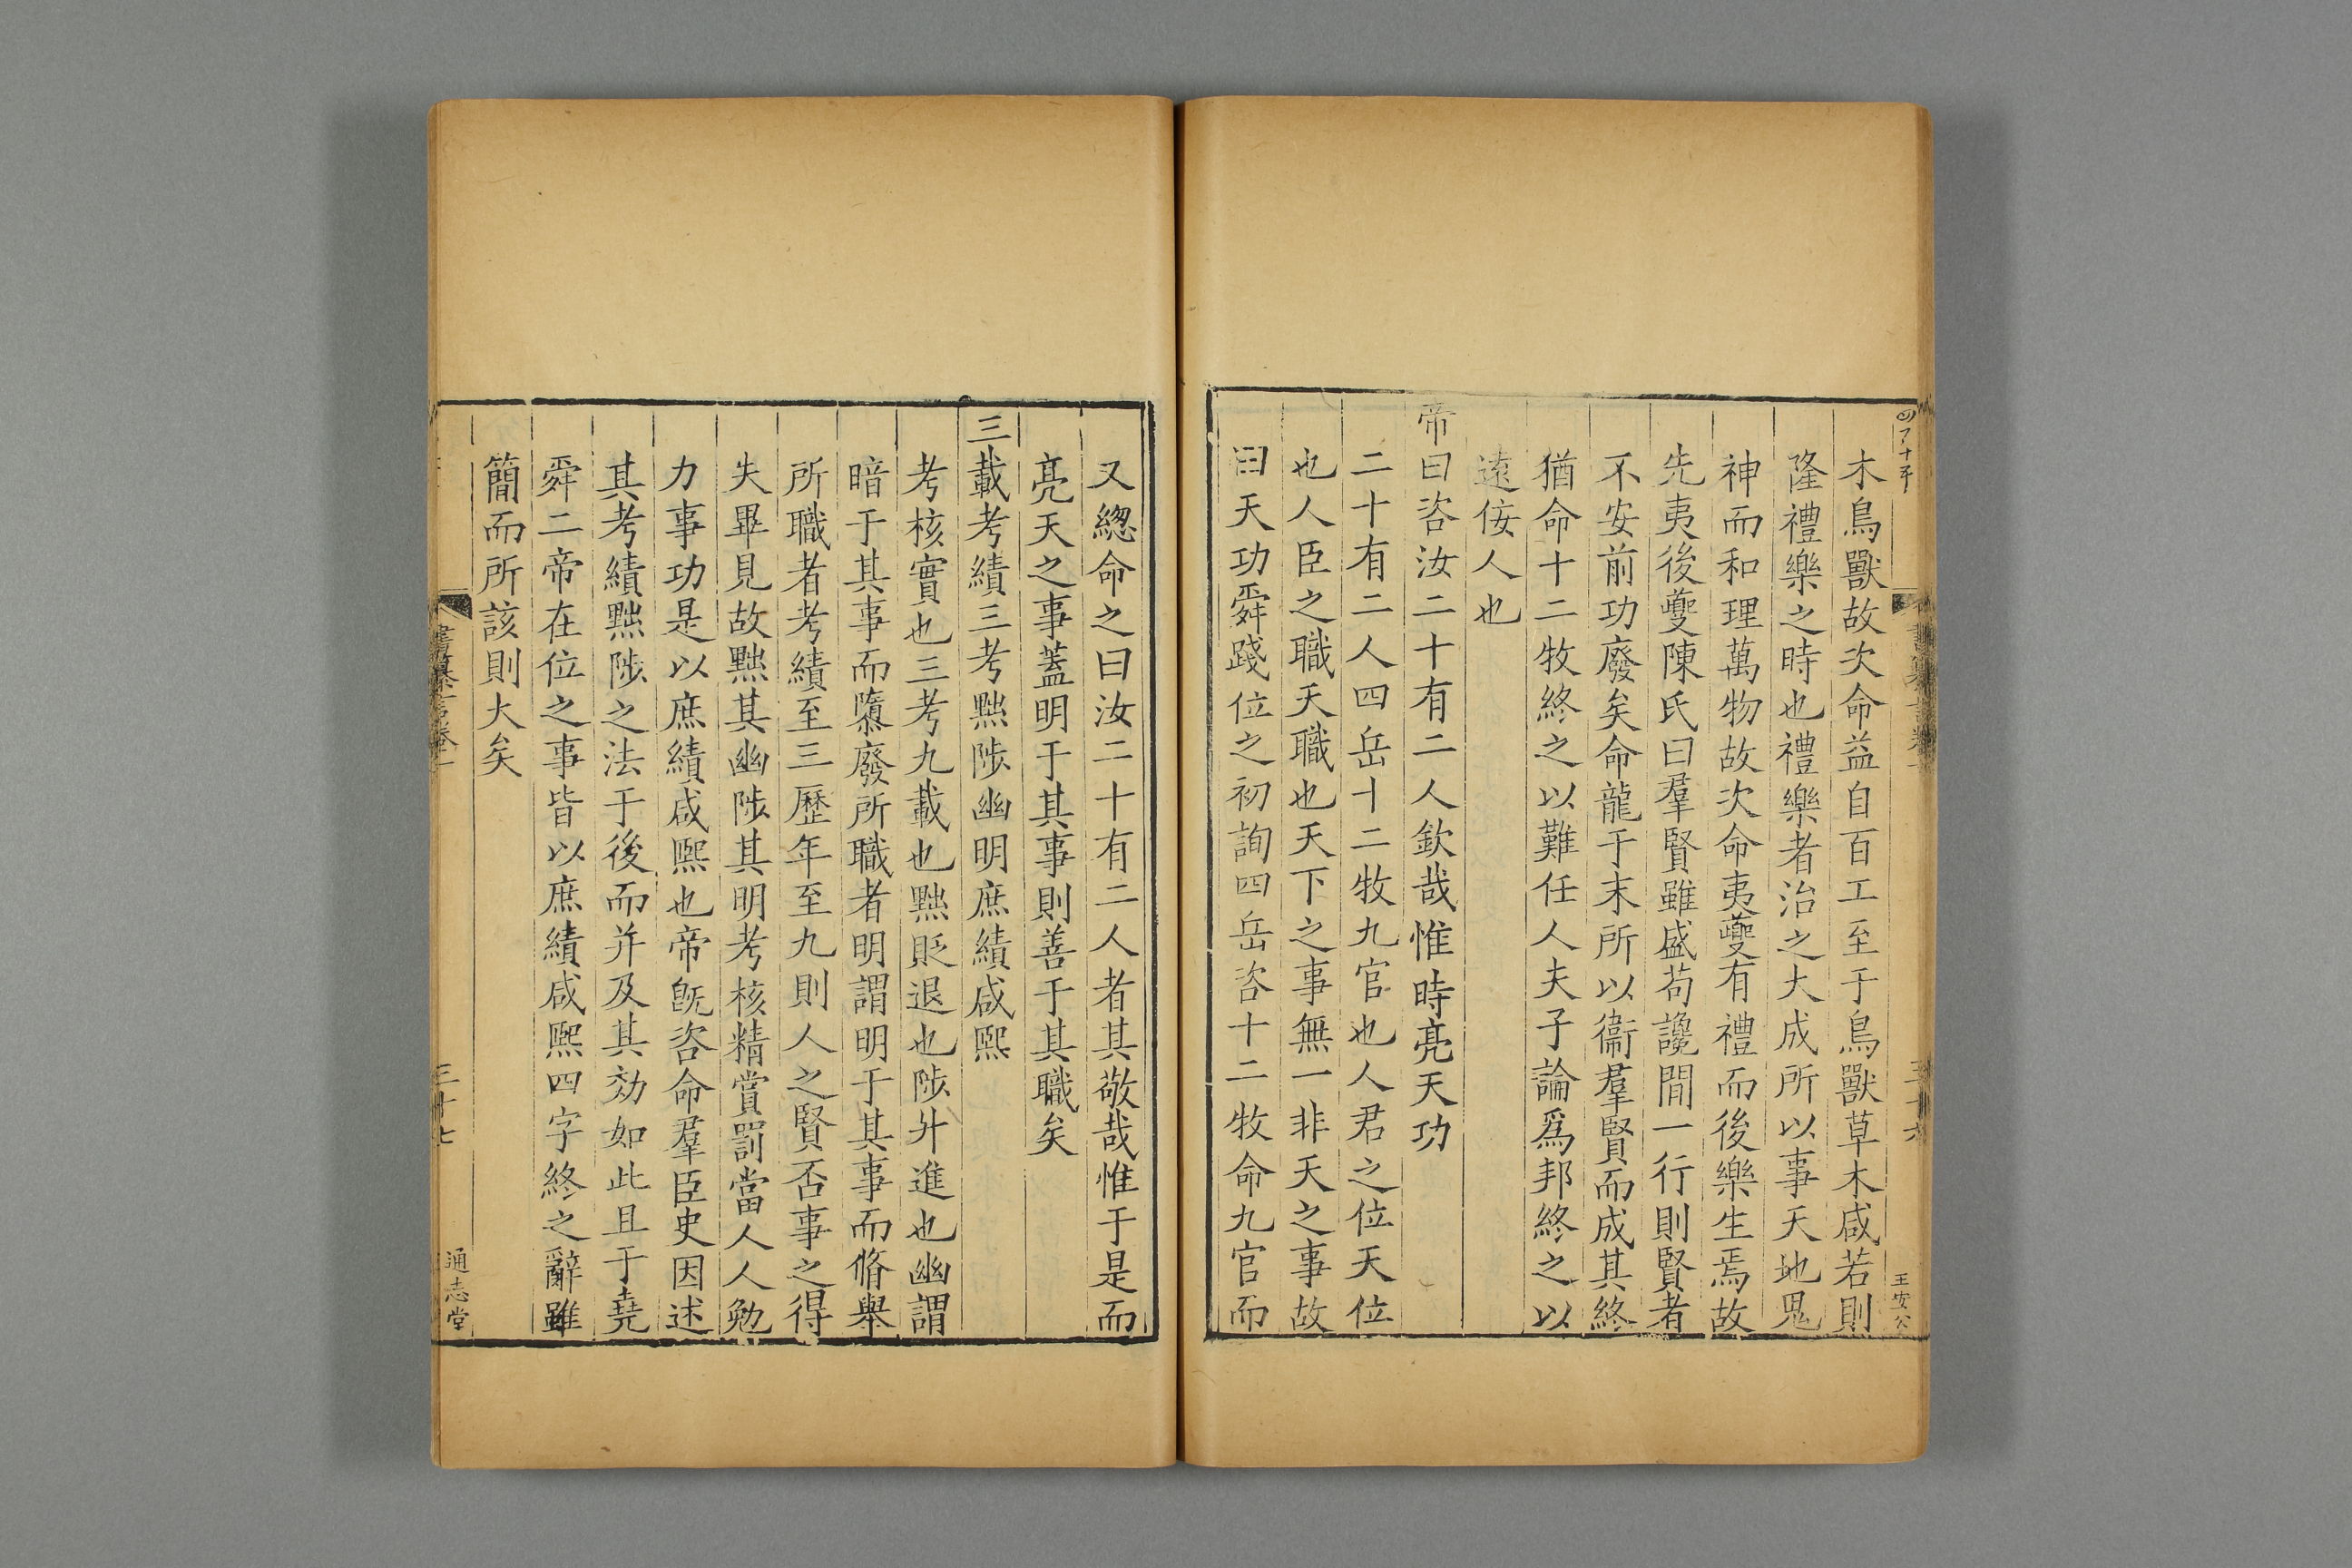 木鳥獸故次命益自百工至于鳥獸草木咸若則
隆禮樂之時也禮樂者治之大成所以事天地鬼
神而和理萬物故次命夷夔有禮而後樂生焉故
先夷後夔陳氏曰羣賢雖盛苟讒間一行則賢者
不安前功廢矣命龍于末所以衞羣賢而成其終
猶命十二牧終之以難任人夫子論爲邦終之以
遠佞人也
帝曰咨汝二十有二人欽哉惟時亮天功
二十有二人四岳十二牧九官也人君之位天位
也人臣之職天職也天下之事無一非天之事故
曰天功舜踐位之初詢四岳咨十二牧命九官而
王安公
又緫命之曰汝二十有二人者其敬哉惟于是而
亮天之事蓋明于其事則善于其職矣
三載考績三考黜陟幽明庶績咸熙
考核實也三考九載也黜貶退也陟升進也幽謂
暗于其事而隳廢所職者明謂明于其事而脩舉
所職者考績至三歷年至九則人之賢否事之得
失畢見故黜其幽陟其明考核精賞罰當人人勉
力事功是以庶績咸熙也帝旣咨命羣臣史因述
其考績黜陟之法于後而并及其効如此且于堯
舜二帝在位之事皆以庶績咸熙四字終之辭雖
簡而所該則大矣
書纂言卷一
三十七
通志堂